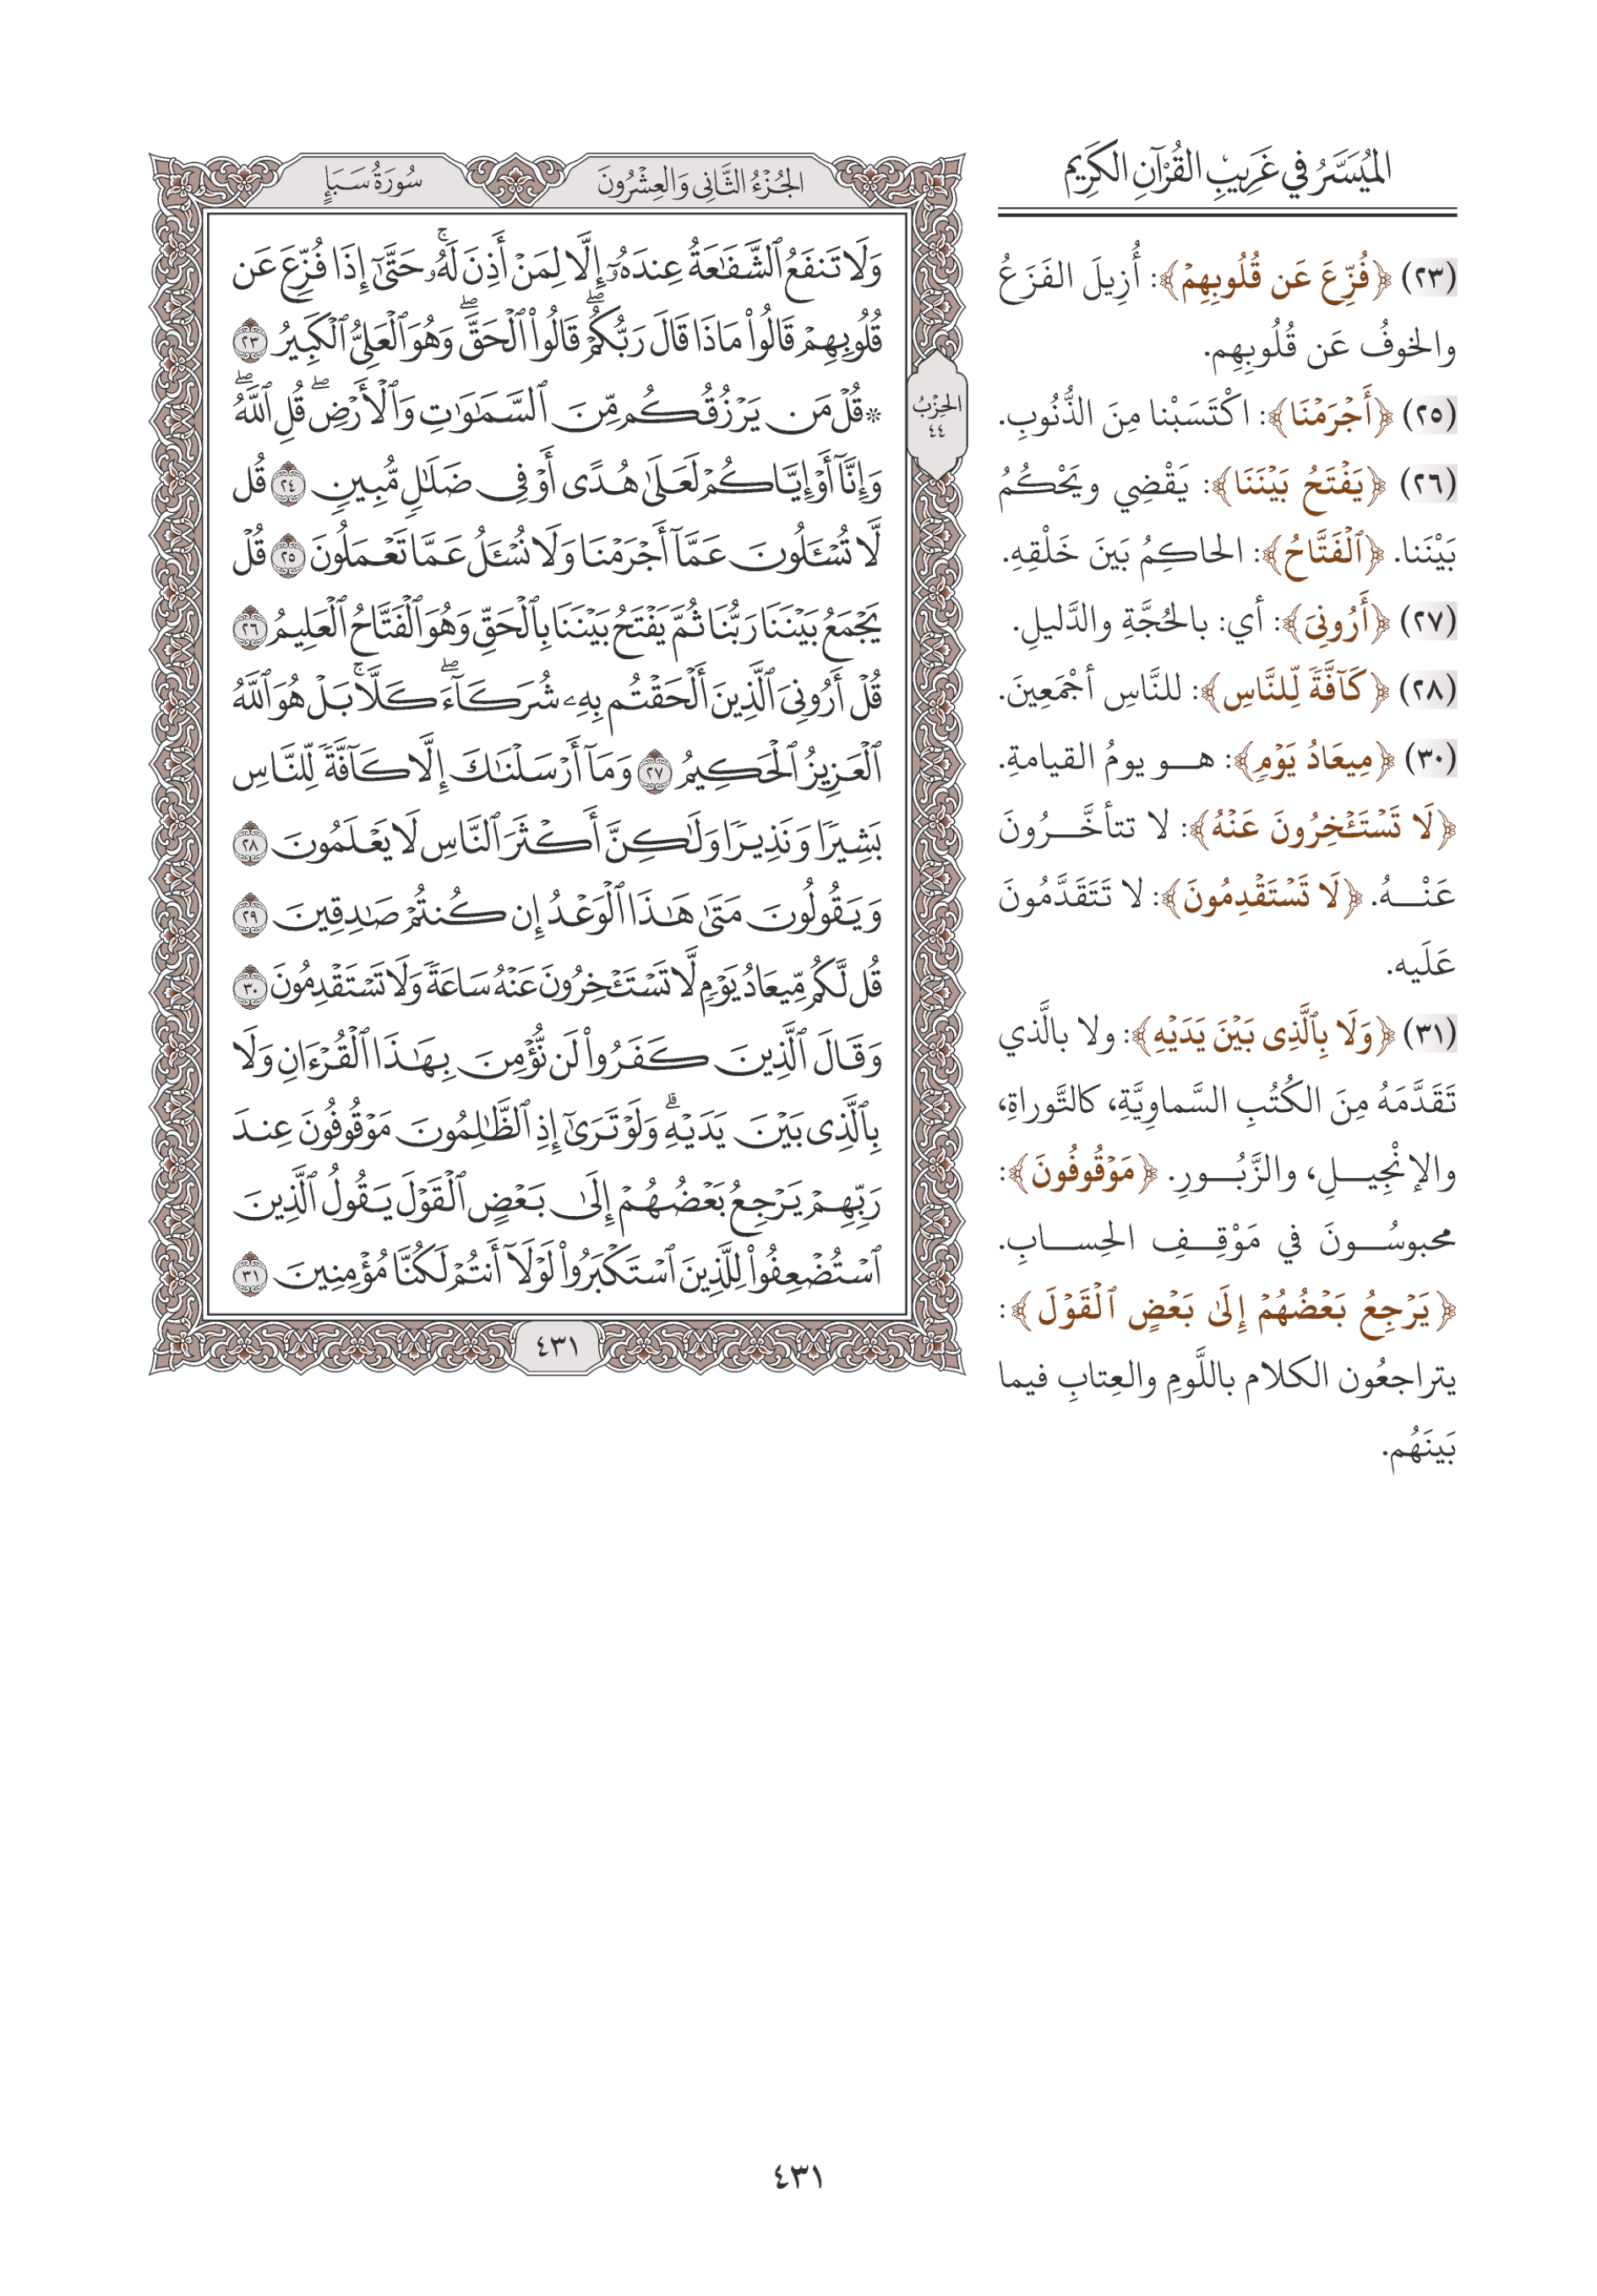 الميسر في غريب القرآن الكريم
(٢٣) ﴿فُزِّعَ عَن قُلُوبِهِمۡ﴾: أُزِيلَ الفَزَعُ
والخوفُ عَن قُلُوبِهِم.
(٢٥) ﴿أَجۡرَمۡنَا﴾: اكْتَسَبْنا مِنَ الذُّنُوبِ.
(٢٦) ﴿يَفۡتَحُ بَيۡنَنَا﴾: يَقْضِي ويَحْكُمُ
بَيْنَنا. ﴿ٱلۡفَتَّاحُ﴾: الحاكِمُ بَينَ خَلْقِهِ.
(٢٧) ﴿أَرُونِيَ﴾: أي: بالحُجَّةِ والدَّليلِ.
(٢٨) ﴿كَآفَّةٗ لِّلنَّاسِ﴾: للنَّاسِ أجْمَعِينَ.
(٣٠) ﴿مِيعَادُ يَوۡمٖ﴾: هو يومُ القيامةِ.
﴿لَا تَسۡتَـٔۡخِرُونَ عَنۡهُ﴾: لا تتأخَّرُونَ
عَنْهُ. ﴿لَا تَسۡتَقۡدِمُونَ﴾: لا تَتَقَدَّمُونَ
عَلَيه.
(٣١) ﴿وَلَا بِٱلَّذِي بَيۡنَ يَدَيۡهِ﴾: ولا بالَّذي
تَقَدَّمَهُ مِنَ الكُتُبِ السَّماوِيَّةِ، كالتَّوراةِ،
والإنْجِيلِ، والزَّبُورِ. ﴿مَوۡقُوفُونَ﴾:
محبوسُونَ في مَوْقِفِ الحِسابِ.
﴿يَرۡجِعُ بَعۡضُهُمۡ إِلَىٰ بَعۡضٍ ٱلۡقَوۡلَ﴾:
يتراجعُون الكلام باللَّومِ والعِتابِ فيما
بَينَهُم.
الجُزْءُ الثَّانِي وَالعِشْرُونَ
سُورَةُ سَبَإٍ
وَلَا تَنفَعُ ٱلشَّفَٰعَةُ عِندَهُۥٓ إِلَّا لِمَنۡ أَذِنَ لَهُۥۚ حَتَّىٰٓ إِذَا فُزِّعَ عَن
قُلُوبِهِمۡ قَالُواْ مَاذَا قَالَ رَبُّكُمۡۖ قَالُواْ ٱلۡحَقَّۖ وَهُوَ ٱلۡعَلِيُّ ٱلۡكَبِيرُ ٢٣
۞قُلۡ مَن يَرۡزُقُكُم مِّنَ ٱلسَّمَٰوَٰتِ وَٱلۡأَرۡضِۖ قُلِ ٱللَّهُۖ
وَإِنَّآ أَوۡ إِيَّاكُمۡ لَعَلَىٰ هُدًى أَوۡ فِي ضَلَٰلٖ مُّبِينٖ ٢٤ قُل
لَّا تُسۡـَٔلُونَ عَمَّآ أَجۡرَمۡنَا وَلَا نُسۡـَٔلُ عَمَّا تَعۡمَلُونَ ٢٥ قُلۡ
يَجۡمَعُ بَيۡنَنَا رَبُّنَا ثُمَّ يَفۡتَحُ بَيۡنَنَا بِٱلۡحَقِّ وَهُوَ ٱلۡفَتَّاحُ ٱلۡعَلِيمُ ٢٦
قُلۡ أَرُونِيَ ٱلَّذِينَ أَلۡحَقۡتُم بِهِۦ شُرَكَآءَۖ كَلَّاۚ بَلۡ هُوَ ٱللَّهُ
ٱلۡعَزِيزُ ٱلۡحَكِيمُ ٢٧ وَمَآ أَرۡسَلۡنَٰكَ إِلَّا كَآفَّةٗ لِّلنَّاسِ
بَشِيرٗا وَنَذِيرٗا وَلَٰكِنَّ أَكۡثَرَ ٱلنَّاسِ لَا يَعۡلَمُونَ ٢٨
وَيَقُولُونَ مَتَىٰ هَٰذَا ٱلۡوَعۡدُ إِن كُنتُمۡ صَٰدِقِينَ ٢٩
قُل لَّكُم مِّيعَادُ يَوۡمٖ لَّا تَسۡتَـٔۡخِرُونَ عَنۡهُ سَاعَةٗ وَلَا تَسۡتَقۡدِمُونَ ٣٠
وَقَالَ ٱلَّذِينَ كَفَرُواْ لَن نُّؤۡمِنَ بِهَٰذَا ٱلۡقُرۡءَانِ وَلَا
بِٱلَّذِي بَيۡنَ يَدَيۡهِۗ وَلَوۡ تَرَىٰٓ إِذِ ٱلظَّٰلِمُونَ مَوۡقُوفُونَ عِندَ
رَبِّهِمۡ يَرۡجِعُ بَعۡضُهُمۡ إِلَىٰ بَعۡضٍ ٱلۡقَوۡلَ يَقُولُ ٱلَّذِينَ
ٱسۡتُضۡعِفُواْ لِلَّذِينَ ٱسۡتَكۡبَرُواْ لَوۡلَآ أَنتُمۡ لَكُنَّا مُؤۡمِنِينَ ٣١
الحِزْبُ
٤٤
٤٣١
٤٣١